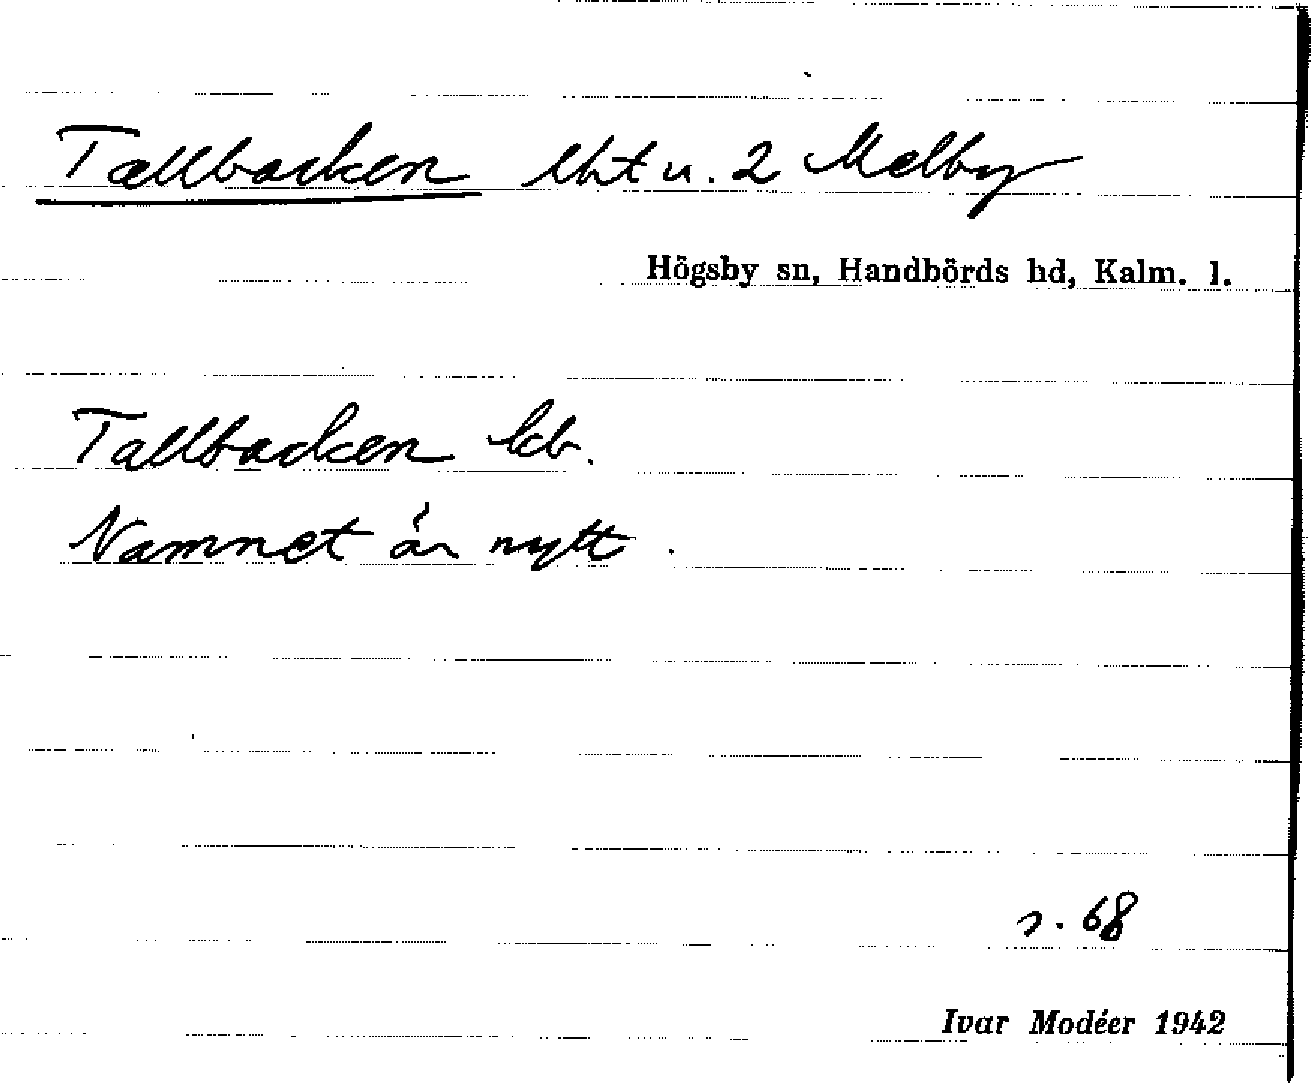 Tallbacken lht u. 2 Melby
Högsby sn, Handbörds hd, Kalm. l.
Tallbacken kb.
Namnet är nytt.
s. 68
Ivar Modéer 1942